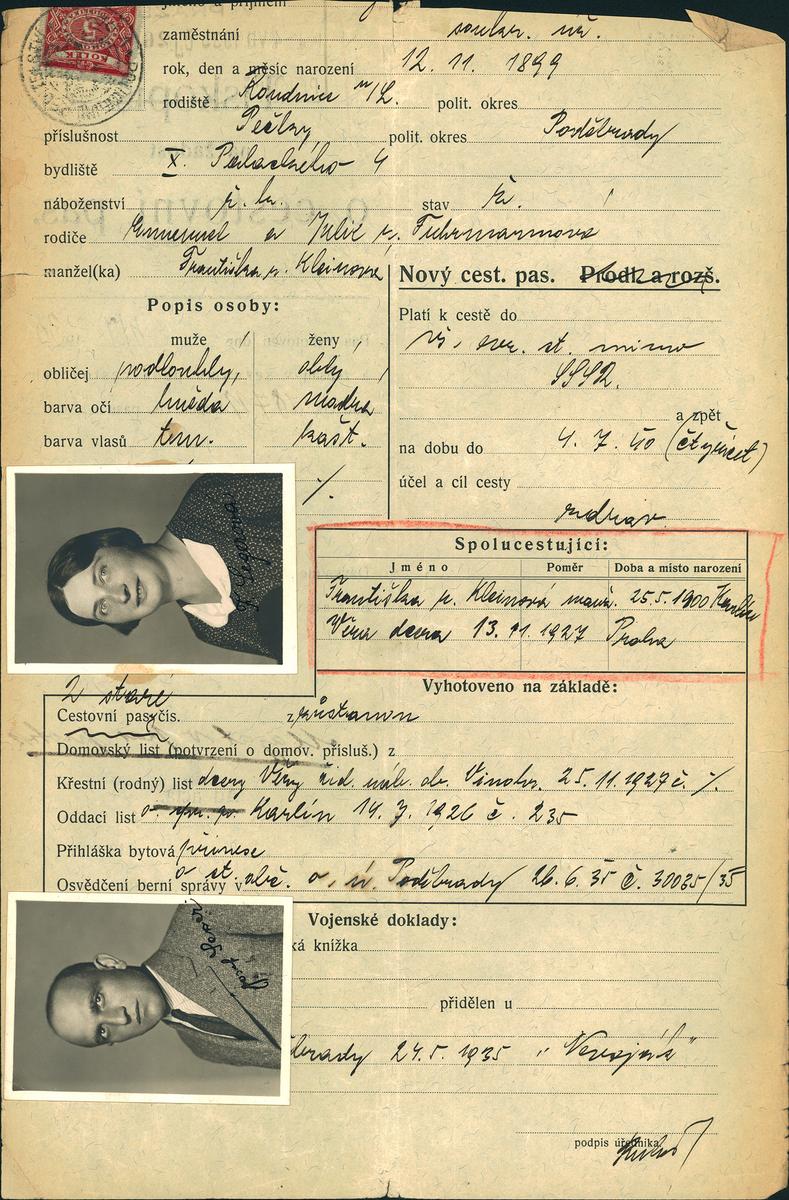 jméno a příjmení
zaměstnání soukr. úř.
rok, den a měsíc narození 12. 11. 1899
rodiště Roudnice n/L. polit. okres
příslušnost Pečky, polit. okres Poděbrady
bydliště X. Palackého 4
náboženství stav ž.
rodiče a Julie r. Fuhrmannova
manžel(ka) Františka r. Kleinova
Nový cest. pas. Prodl. a rozš.
Popis osoby:
muže ženy
obličej podlouhlý, oblý
barva očí hnědá modra
barva vlasů tm. kašt.
%
Platí k cestě do
vš. evr. st. mimo
SSSR.
a zpět
na dobu do 4. 7. 40 (čtyřicet)
účel a cíl cesty
zdrav.
Spolucestující:
Jméno Poměr Doba a místo narození
Františka r. Kleinová manž. 25. 5. 1900 Karlín
Věra dcera 13. 11. 1927 Praha
Vyhotoveno na základě:
2 staré
Cestovní pasy čís. zůstanou
Domovský list (potvrzení o domov. přísluš.) z
Křestní (rodný) list dcery Věry žid. náb. ob. Vinohr. 25. 11. 1927 č. %
Oddací list Karlín 14. 7. 1926 č. 235
Přihláška bytová přinese
Osvědčení berní správy v o st. obč. o. ú. Poděbrady 26. 6. 35 č. 30035/35
Vojenské doklady:
ká knížka
přidělen u
brady 24. 5. 1935 „Nevoják"
podpis úředníka